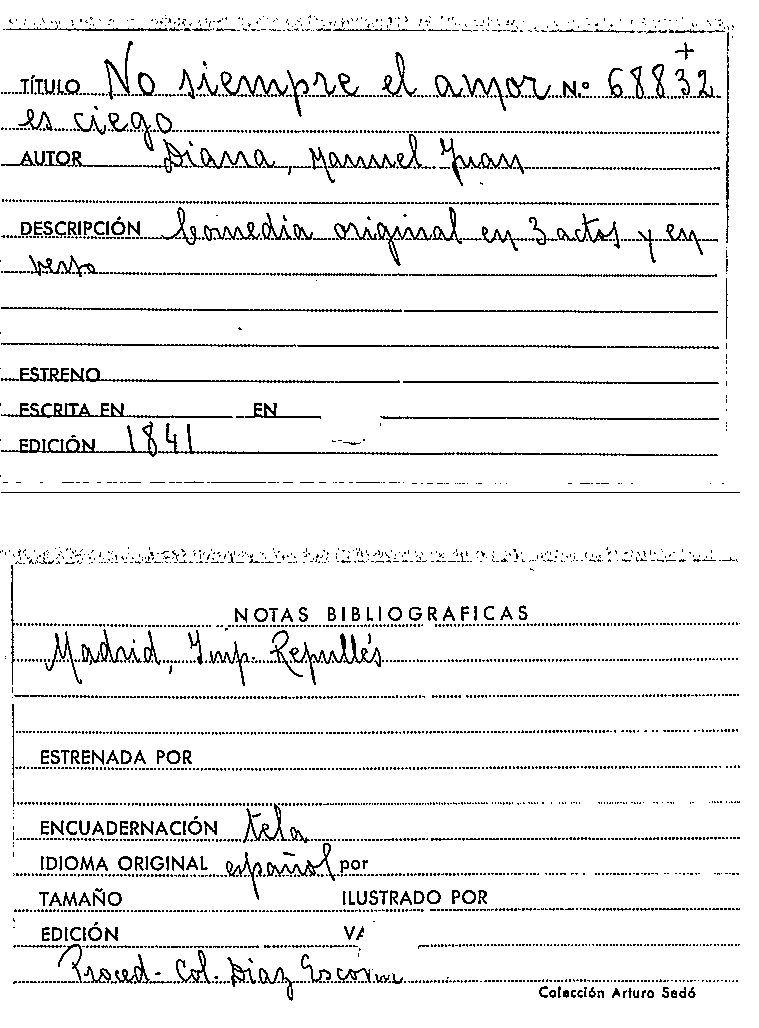 +
TÍTULO No siempre el amor N.º 68832
es ciego
AUTOR Diana, Manuel Juan
DESCRIPCIÓN Comedia original en 3 actos y en
verso
ESTRENO
ESCRITA EN EN
EDICIÓN 1841
NOTAS BIBLIOGRAFICAS
Madrid, Imp. Repullés
ESTRENADA POR
ENCUADERNACIÓN tela
IDIOMA ORIGINAL español por
TAMAÑO ILUSTRADO POR
EDICIÓN
Proced- Col. Díaz
Colección Arturo Sedó